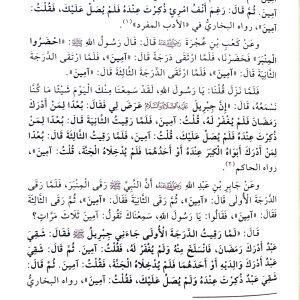 آمِينَ. ثُمَّ قَالَ: رَغِمَ أَنْفُ امْرِئٍ ذُكِرْتَ عِنْدَهُ فَلَمْ يُصَلِّ عَلَيْكَ، فَقُلْتُ:
آمِينَ»، رواه البخاريُّ في «الأدب المفرد»(١).
وعَنْ كَعْبِ بْنِ عُجْرَةَ قَالَ: قَالَ رَسُولُ اللهِ ﷺ: «احْضُرُوا
الْمِنْبَرَ» فَحَضَرْنَا، فَلَمَّا ارْتَقَى الدَّرَجَةَ قَالَ: «آمِينَ»، فَلَمَّا ارْتَقَى الدَّرَجَةَ
الثَّانِيَةَ قَالَ: «آمِينَ»، فَلَمَّا ارْتَقَى الدَّرَجَةَ الثَّالِثَةَ قَالَ: «آمِينَ».
فَلَمَّا نَزَلَ قُلْنَا: يَا رَسُولَ اللهِ، لَقَدْ سَمِعْنَا مِنْكَ الْيَوْمَ شَيْئًا مَا كُنَّا
نَسْمَعُهُ، قَالَ: «إِنَّ جِبْرِيلَ عَرَضَ لِي فَقَالَ: بُعْدًا لِمَنْ أَدْرَكَ
رَمَضَانَ فَلَمْ يُغْفَرْ لَهُ، قُلْتُ: آمِينَ، فَلَمَّا رَقِيتُ الثَّانِيَةَ قَالَ: بُعْدًا لِمَنْ
ذُكِرْتَ عِنْدَهُ فَلَمْ يُصَلِّ عَلَيْكَ، قُلْتُ: آمِينَ، فَلَمَّا رَقِيتُ الثَّالِثَةَ قَالَ: بُعْدًا
لِمَنْ أَدْرَكَ أَبَوَاهُ الْكِبَرَ عِنْدَهُ أَوْ أَحَدُهُمَا فَلَمْ يُدْخِلَاهُ الْجَنَّةَ، قُلْتُ: آمِينَ»،
رواه الحاكم(٢).
وعَنْ جَابِرِ بْنِ عَبْدِ اللهِ أَنَّ النَّبِيَّ ﷺ رَقَى الْمِنْبَرَ، فَلَمَّا رَقَى
الدَّرَجَةَ الْأُولَى قَالَ: «آمِينَ»، ثُمَّ رَقَى الثَّانِيَةَ فَقَالَ: «آمِينَ»، ثُمَّ رَقَى الثَّالِثَةَ
فَقَالَ: «آمِينَ»، فَقَالُوا: يَا رَسُولَ اللهِ، سَمِعْنَاكَ تَقُولُ: آمِينَ ثَلَاثَ مَرَّاتٍ؟
قَالَ: «لَمَّا رَقِيتُ الدَّرَجَةَ الْأُولَى جَاءَنِي جِبْرِيلُ ﷺ فَقَالَ: شَقِيَ
عَبْدٌ أَدْرَكَ رَمَضَانَ، فَانْسَلَخَ مِنْهُ وَلَمْ يُغْفَرْ لَهُ، فَقُلْتُ: آمِينَ. ثُمَّ قَالَ: شَقِيَ
عَبْدٌ أَدْرَكَ وَالِدَيْهِ أَوْ أَحَدَهُمَا فَلَمْ يُدْخِلَاهُ الْجَنَّةَ، فَقُلْتُ: آمِينَ. ثُمَّ قَالَ:
شَقِيَ عَبْدٌ ذُكِرْتَ عِنْدَهُ وَلَمْ يُصَلِّ عَلَيْكَ، فَقُلْتُ: آمِينَ»، رواه البخاريُّ